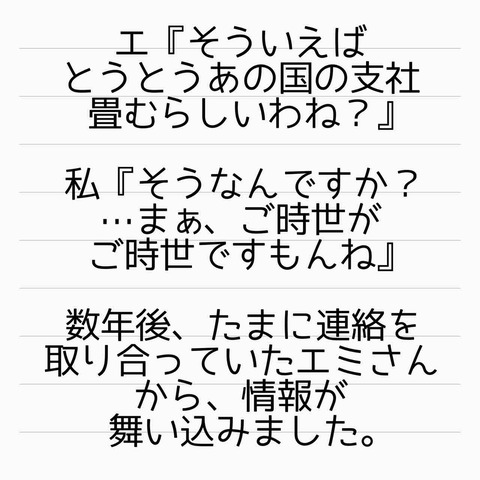 エ『そういえば
とうとうあの国の支社
畳むらしいわね？』
私『そうなんですか？
…まぁ、ご時世が
ご時世ですもんね』
数年後、たまに連絡を
取り合っていたエミさん
から、情報が
舞い込みました。